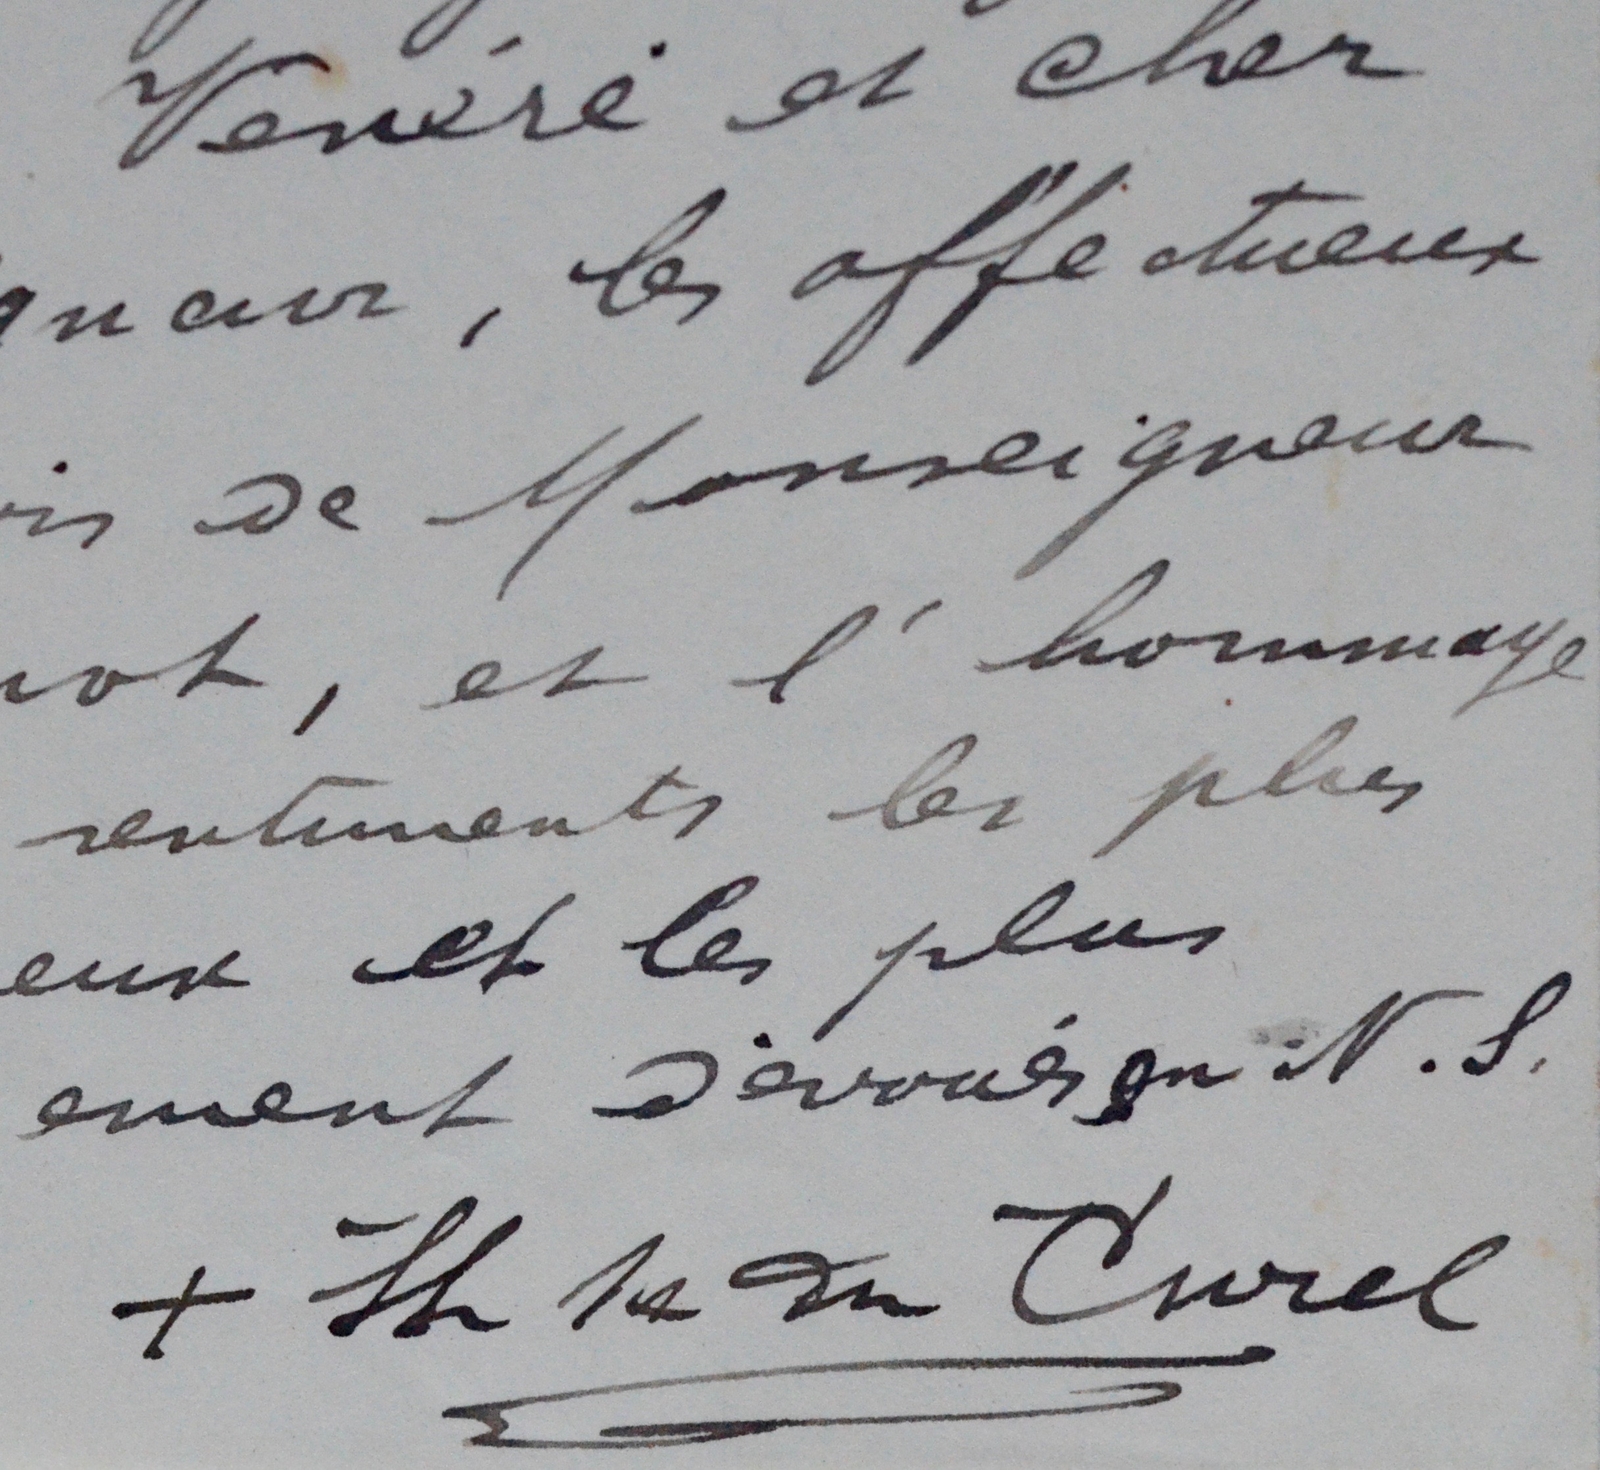 Vénéré et cher
gneur, les affectueux
de Monseigneur
et l'hommage
sentiments les plus
eux et les plus
ement dévoués en N.S.
+ Th du Curel